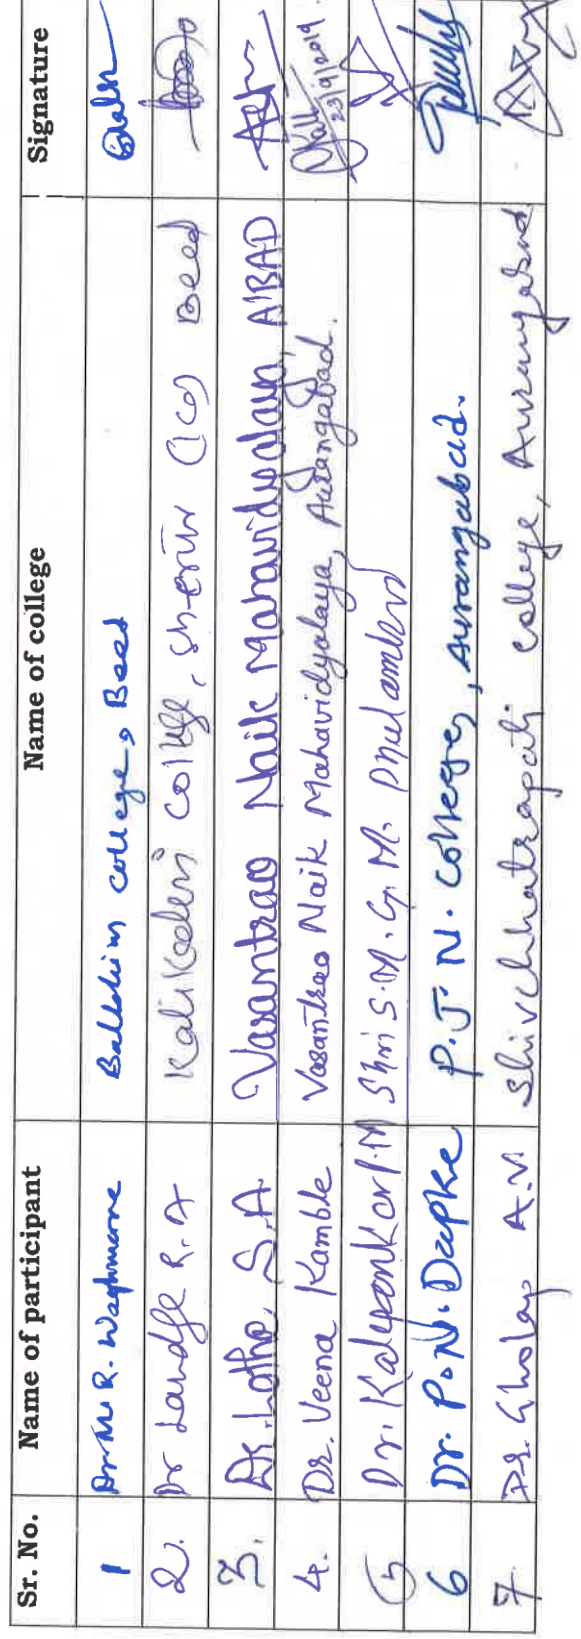 Sr. No. Name of participant Name of college Signature
1 Dr M. R. Waghmare Balbhim College, Beed
2. Dr Landge R. A Kalikadevi College, Shirur (Ka) Beed
3. Dr. Lathe. S. A. Vasantrao Naik Mahavidyalaya, A'BAD
4. Dr. Veena Kamble Vasantrao Naik Mahavidyalaya, Aurangabad. 23/9/2019.
5 Dr. Kalyankar P. M Shri S. M. G. M. Phulambri
6 Dr. P. N. Dapke P. J. N. College, Aurangabad.
7. Dr. Gholap A. V. Shivchhatrapati College, Aurangabad